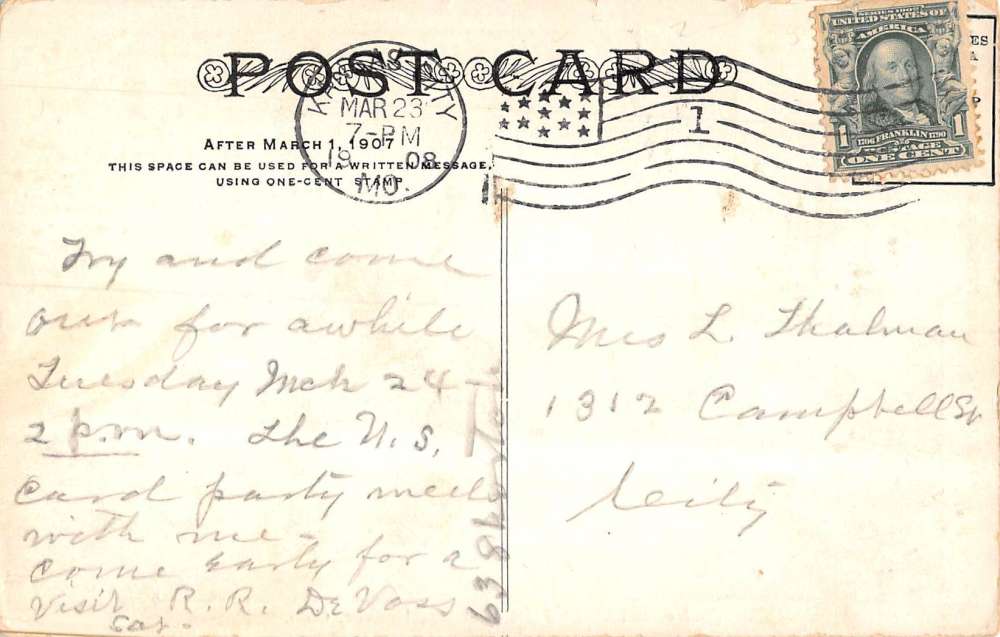 POST CARD
AFTER MARCH 1, 1907
THIS SPACE CAN BE USED FOR A WRITTEN MESSAGE,
USING ONE-CENT STAMP
KANSAS CITY
MAR 23
7-PM
1908
MO.
1
SERIES 1902
UNITED STATES OF
AMERICA
1706 FRANKLIN 1790
POSTAGE
1 1
ONE CENT
Try and come
over for awhile
Tuesday Mch 24 -
2 p.m. The N. S.
card party meets
with me -
come early for a
visit R. R. De Voss
Mrs L. Thalman
1312 Campbell St
City